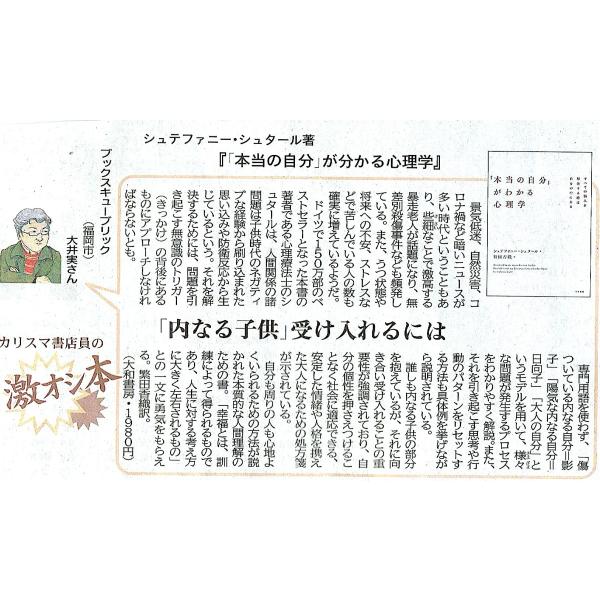 シュテファニー・シュタール著
『「本当の自分」が分かる心理学』
すべての悩みを
解決する鍵は
自分の中にある
「本当の自分」
がわかる
心理学
シュテファニー・シュタール・著
繁田香織・訳
大和書房
ブックスキューブリック
(福岡市)
大井実さん
カリスマ書店員の
激オシ本
「内なる子供」受け入れるには
景気低迷、自然災害、コ
ロナ禍など暗いニュースが
多い時代ということもあ
り、些細なことで激高する
暴走老人が話題になり、無
差別殺傷事件なども頻発し
ている。また、うつ状態や
将来への不安、ストレスな
どで苦しんでいる人の数も
確実に増えているようだ。
ドイツで150万部のベ
ストセラーとなった本書の
著者である心理療法士のシ
ュタールは、人間関係の諸
問題は子供時代のネガティ
ブな経験から刷り込まれた
思い込みや防衛反応から生
じているという。それを解
決するためには、問題を引
き起こす無意識のトリガー
(きっかけ)の背後にある
ものにアプローチしなけれ
ばならないとも。
専門用語を使わず、「傷
ついている内なる自分=影
子」「陽気な内なる自分=
日向子」「大人の自分」と
いうモデルを用いて、様々
な問題が発生するプロセス
をわかりやすく解説。また、
それを引き起こす思考や行
動のパターンをリセットす
る方法も具体例を挙げなが
ら説明されている。
誰しも内なる子供の部分
を抱えているが、それに向
き合い受け入れることの重
要性が強調されており、自
分の個性を押さえつけるこ
となく社会に適応できる、
安定した情緒や人格を携え
た大人になるための処方箋
が示されている。
自分も周りの人も心地よ
くいられるための方法が説
かれた本質的な人間理解の
ための書。「幸福とは、訓
練によって得られるもので
あり、人生に対する考え方
に大きく左右されるもの」
との一文に勇気をもらえ
る。繁田香織訳。
(大和書房・1980円)